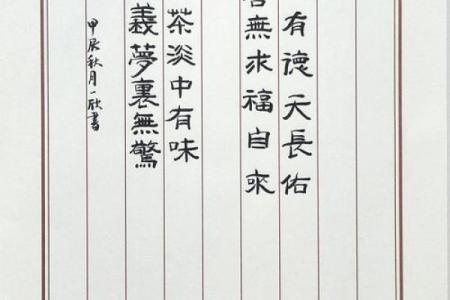 有德天長佑
無求福自來
茶淡中有味
義夢裏無驚
甲辰秋月一欣書